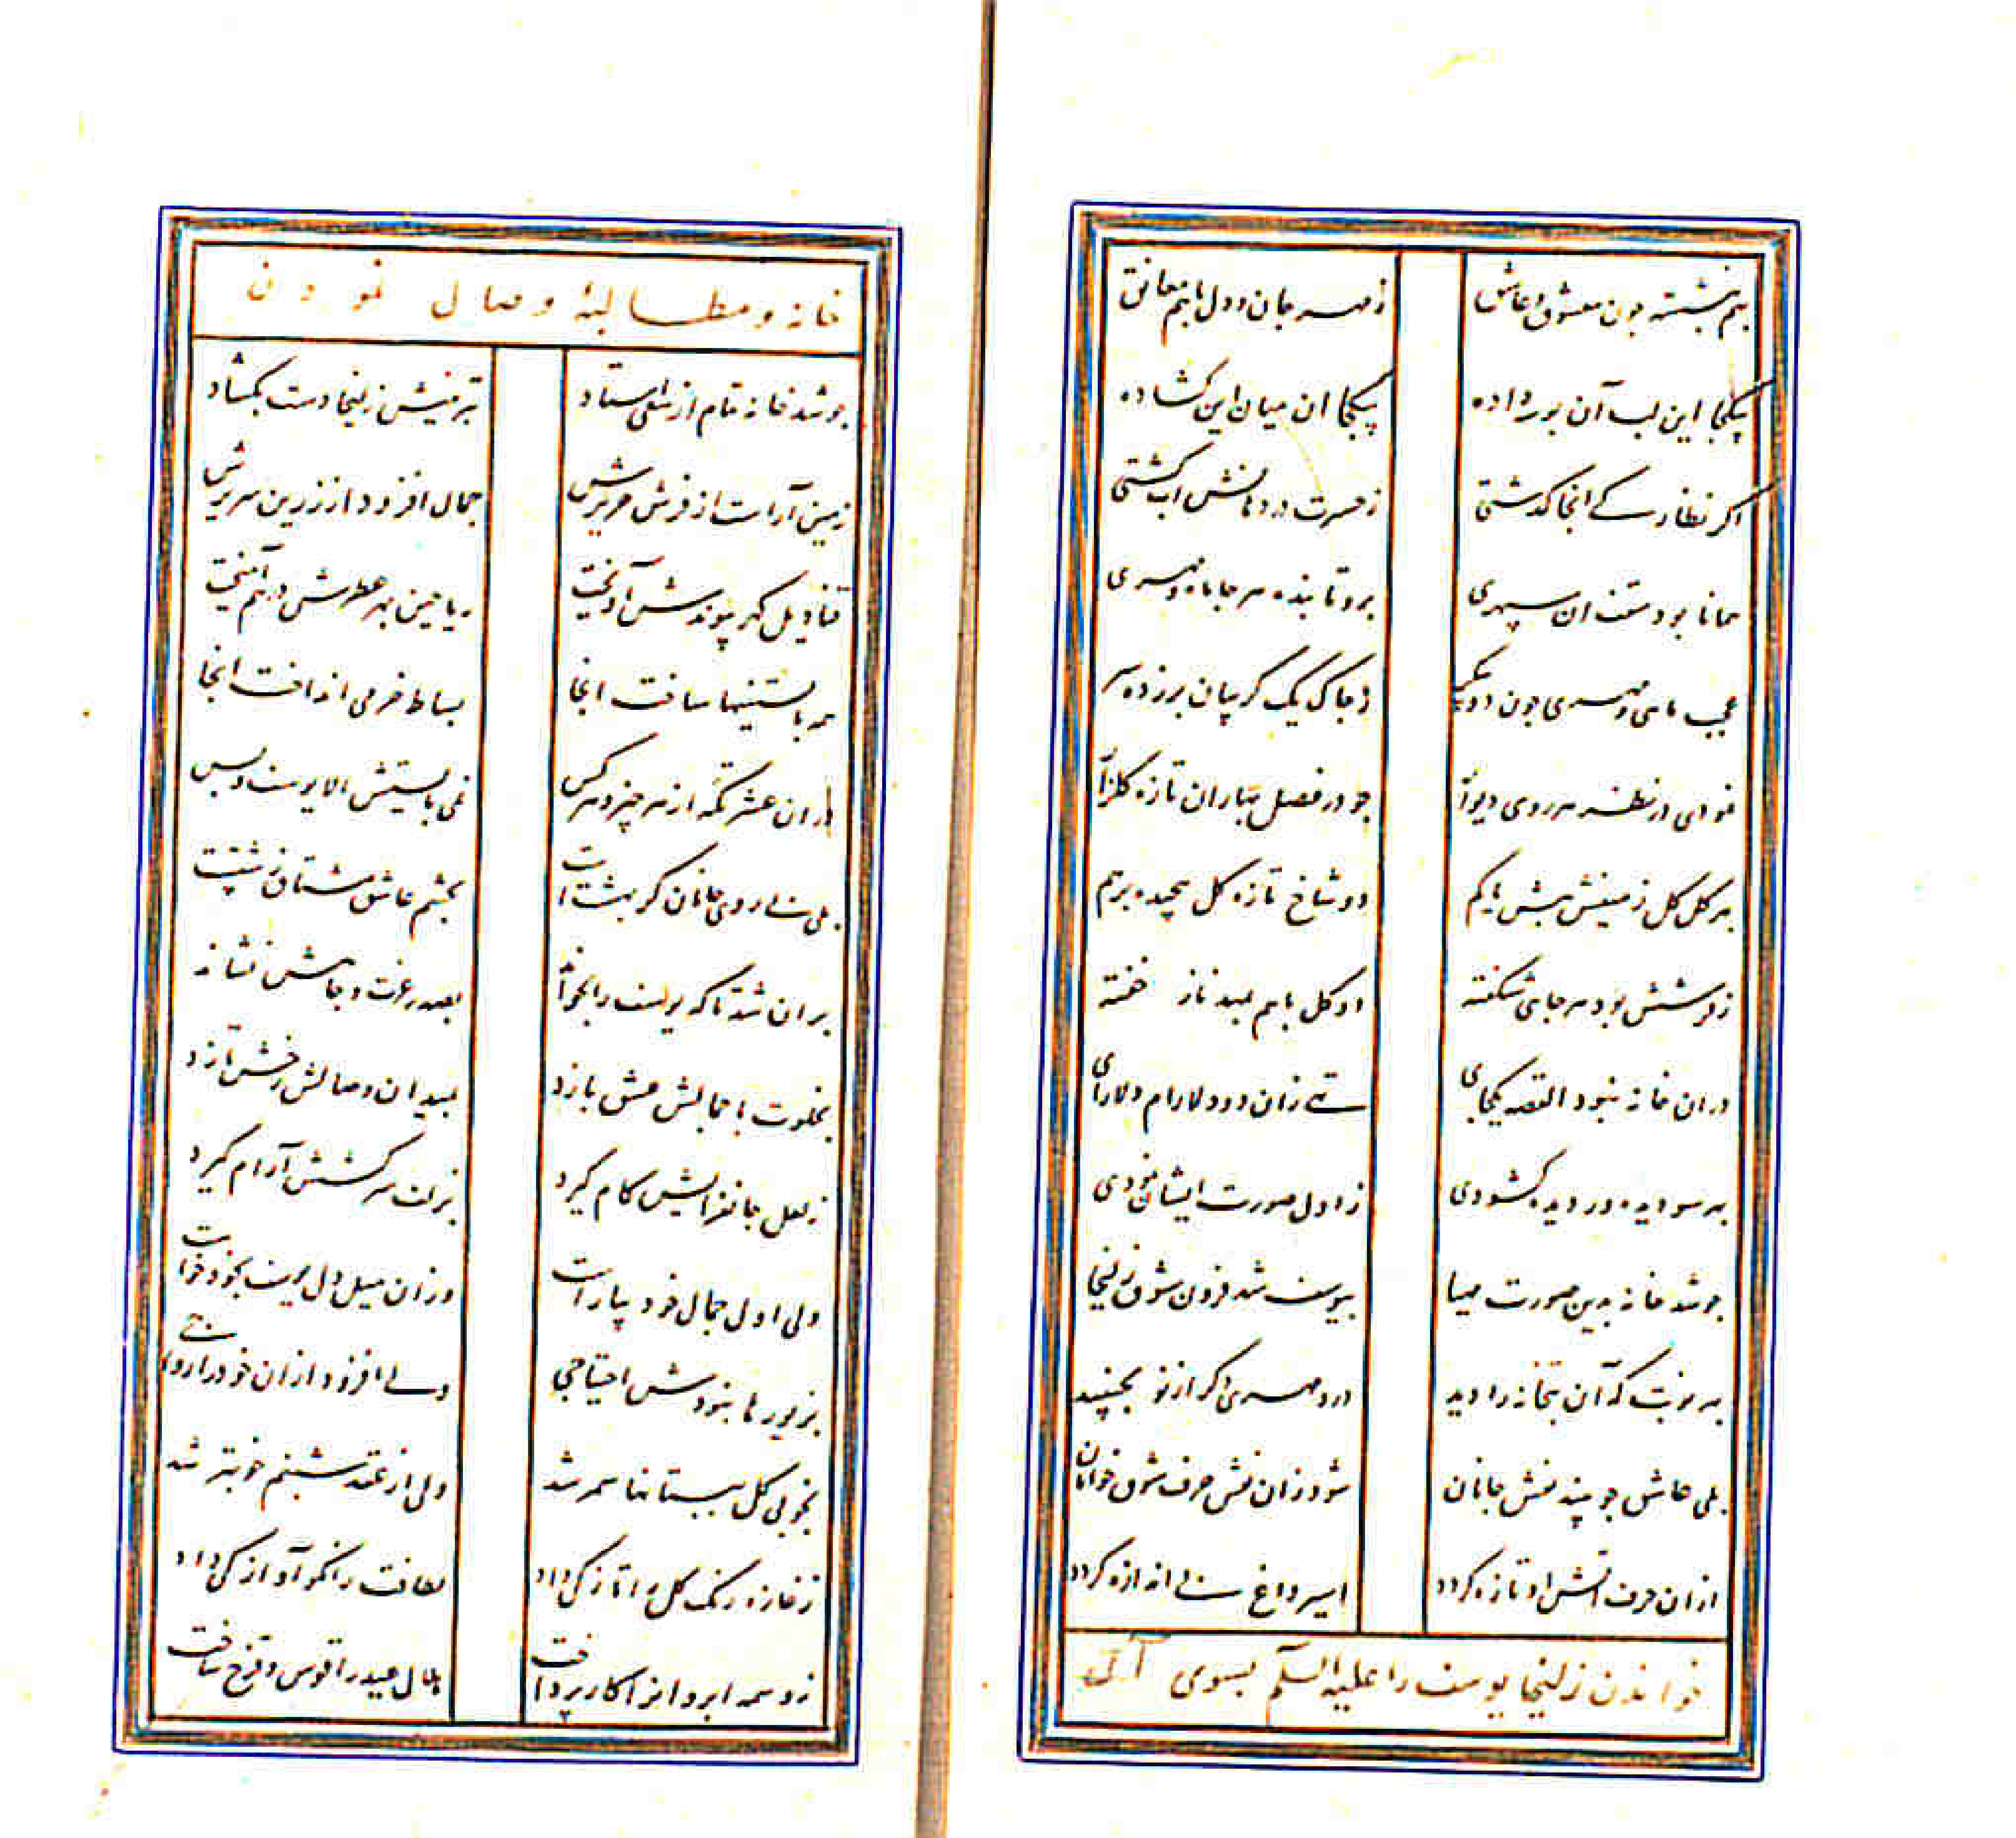 بهم بنشسته جون معشوق و عاشق زمهر جان و دل باهم معانق
بیکجا این لب آن بوسه داده بیکجا ان میان این کشاده
اکر نظارکے انجا کذشتی زحسرت در دهانش آب کشتی
همانا بود سقف ان سپهری برو تابنده هر جا ماه و مهری
عجب ماهی و مهری جون دو پیکر زجاک یک کریبان برزده سر
نمودی در نظر هر روی دیوار جو در فصل بهاران تازه کلزار
بهر کل کل زمینش بیش یا کم دو شاخ تازه کل پیچیده برهم
زفرشش بود هر جای شکفته دو کل باهم بمهد ناز خفته
دران خانه نبود القصه یکجای تهے زان دو دلارام دلارای
بهر سو دیده ور دیده کشودی ز اول صورت ایشان نمودی
جو شد خانه بدین صورت مهیا بیوسف شد فزون شوق زلیخا
بهر نوبت که آن بتخانه را دید درو مهری دکر از نو بجنبید
بلی عاشق جو بیند نقش جانان شود زان نقش حرف شوق خوانان
ازان حرف آتش او تازه کردد اسیر داغ بے اندازه کردد
خواندن زلیخا یوسف را علیه السلم بسوی آن
خانه و مطالبهٔ وصال نمودن
جو شد خانه تمام از سعی استاد بتزیینش زلیخا دست بکشاد
زمین آراست از فرش حریرش جمال افزود از زرین سریرش
قنادیل کهر پیوندش آویخت ریاحین بهر عطرش درهم آمیخت
همه بایستنیها ساخت انجا بساط خرمی انداخت انجا
دران عشرتکه از هر چیز و هر کس نمی بایستش الا یوسف و بس
بلی بے روی جانان کر بهشت است بجشم عاشق مشتاق زشتست
بران شد تا که یوسف را بخواند بصدر عزت و جاهش نشاند
بخلوت با جمالش عشق بازد بمیدان وصالش رخش تازد
زلعل جانفزایش کام کیرد بزلف سرکشش آرام کیرد
ولی اول جمال خود بیاراست وزان میل دل یوسف بخود خواست
بزیورها نبودش احتیاجی ولے افزود ازان خود را رواجے
بخوبی کل ببستانها سمر شد ولی از عقد شبنم خوبتر شد
زغازه رنک کل را تازکی داد لطافت را نکو آوازکی داد
زوسمه ابروانرا کار پرداخت هلال عید را قوس و قزح ساخت